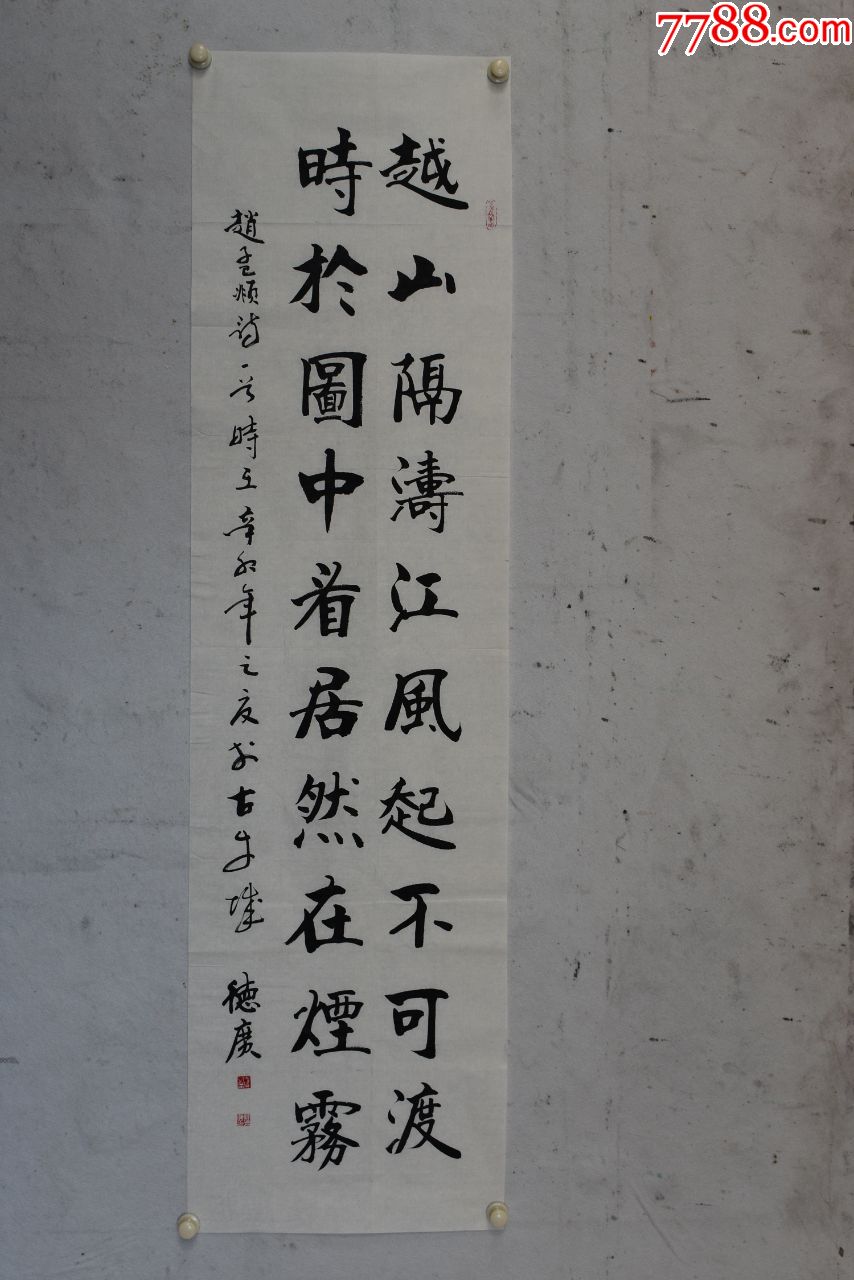 7788.com
越山隔濤江風起不可渡
時於圖中看居然在煙霧
趙孟頫詩一首時在辛卯年之夏於古幸城
德廣